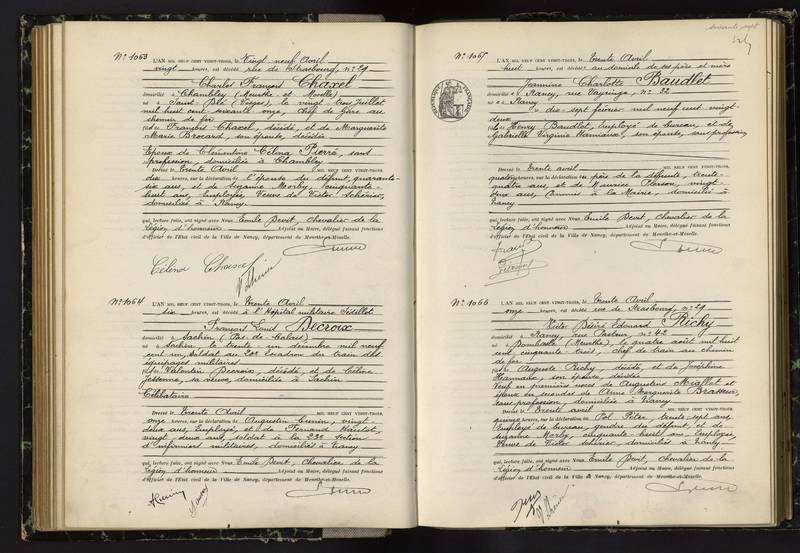 N° 1063
L'AN MIL NEUF CENT VINGT-TROIS, le Vingt neuf Avril
vingt heures, est décédé rue de Strasbourg, n° 29
Charles François Chaxel
domicilié à Chambley (Meurthe et Moselle)
né à Saint-Dié (Vosges), le vingt trois juillet
mil huit cent soixante onze, chef de gare au
chemin de fer
fils de François Chaxel, décédé, et de Marguerite
Marie Brocard, son épouse, décédée
Epoux de Clémentine Célina Pierré, sans
profession, domiciliée à Chambley
Dressé le trente Avril MIL NEUF CENT VINGT-TROIS,
dix heures, sur la déclaration de l'épouse du défunt, quarante
six ans, et de Suzanne Morby, cinquante
huit ans, employée, Veuve de Victor Schérier,
domiciliée à Nancy.
qui, lecture faite, ont signé avec Nous, Emile Devit, chevalier de la
Légion d'honneur Adjoint au Maire, délégué faisant fonctions
d'officier de l'Etat civil de la Ville de Nancy, département de Meurthe-et-Moselle.
Célina
N° 1064
L'AN MIL NEUF CENT VINGT-TROIS, le trente Avril
six heures, est décédé à l'Hôpital militaire Sédillot
François Louis Decroix
domicilié à Sachin (Pas-de-Calais)
né à Sachin, le trente-un décembre mil neuf
cent un, soldat au 20e Escadron du train des
équipages militaires
fils de Valentin Decroix, décédé, et de Céline
sa veuve, domiciliée à Sachin
Célibataire
Dressé le trente Avril MIL NEUF CENT VINGT-TROIS,
onze heures, sur la déclaration de Augustin vingt-
deux ans, employé, et de Fernand
vingt-deux ans, soldat à la 23e Section
d'Infirmiers militaires, domiciliés à Nancy
qui, lecture faite, ont signé avec Nous, Emile Devit, Chevalier de la
Légion d'honneur Adjoint au Maire, délégué faisant fonctions
d'officier de l'Etat civil de la Ville de Nancy, département de Meurthe-et-Moselle.
soixante sept
N° 1065
L'AN MIL NEUF CENT VINGT-TROIS, le trente Avril
huit heures, est décédée au domicile de ses père et mère
Jeannine Charlotte Baudlet
domiciliée à Nancy, rue n° 22
née à Nancy
le dix sept février mil neuf cent vingt-
deux
fille de Henry Baudlet, employé de bureau, et de
Gabrielle Virginie son épouse, sans profession
Dressé le trente avril MIL NEUF CENT VINGT-TROIS,
quatorze heures, sur la déclaration du père de la défunte, trente-
quatre ans, et de Maurice vingt-
deux ans, Commis à la Mairie, domiciliés à
Nancy
qui, lecture faite, ont signé avec Nous, Emile Devit, chevalier de la
Légion d'honneur Adjoint au Maire, délégué faisant fonctions
d'officier de l'Etat civil de la Ville de Nancy, département de Meurthe-et-Moselle.
N° 1066
L'AN MIL NEUF CENT VINGT-TROIS, le trente Avril
onze heures, est décédé rue de Strasbourg, n° 29
Victor Désiré Edouard Richy
domicilié à Nancy, rue Pasteur n° 42
né à Dombasle (Meurthe), le quatre août mil huit
cent cinquante-trois, chef de train au chemin
de fer
fils de Auguste Richy, décédé, et de Joséphine
son épouse, décédée
Veuf en premières noces de Augustine Miallet et
époux en secondes de Anne Marguerite Brasseur,
sans profession, domiciliée à Nancy
Dressé le trente avril MIL NEUF CENT VINGT-TROIS,
heures, sur la déclaration de Pol trente sept ans,
employé de bureau, gendre du défunt, et de
Suzanne Morby, cinquante huit ans, employée,
Veuve de Victor Schérier, domiciliés à Nancy.
qui, lecture faite, ont signé avec Nous, Emile Devit, chevalier de la
Légion d'honneur Adjoint au Maire, délégué faisant fonctions
d'officier de l'Etat civil de la Ville de Nancy, département de Meurthe-et-Moselle.